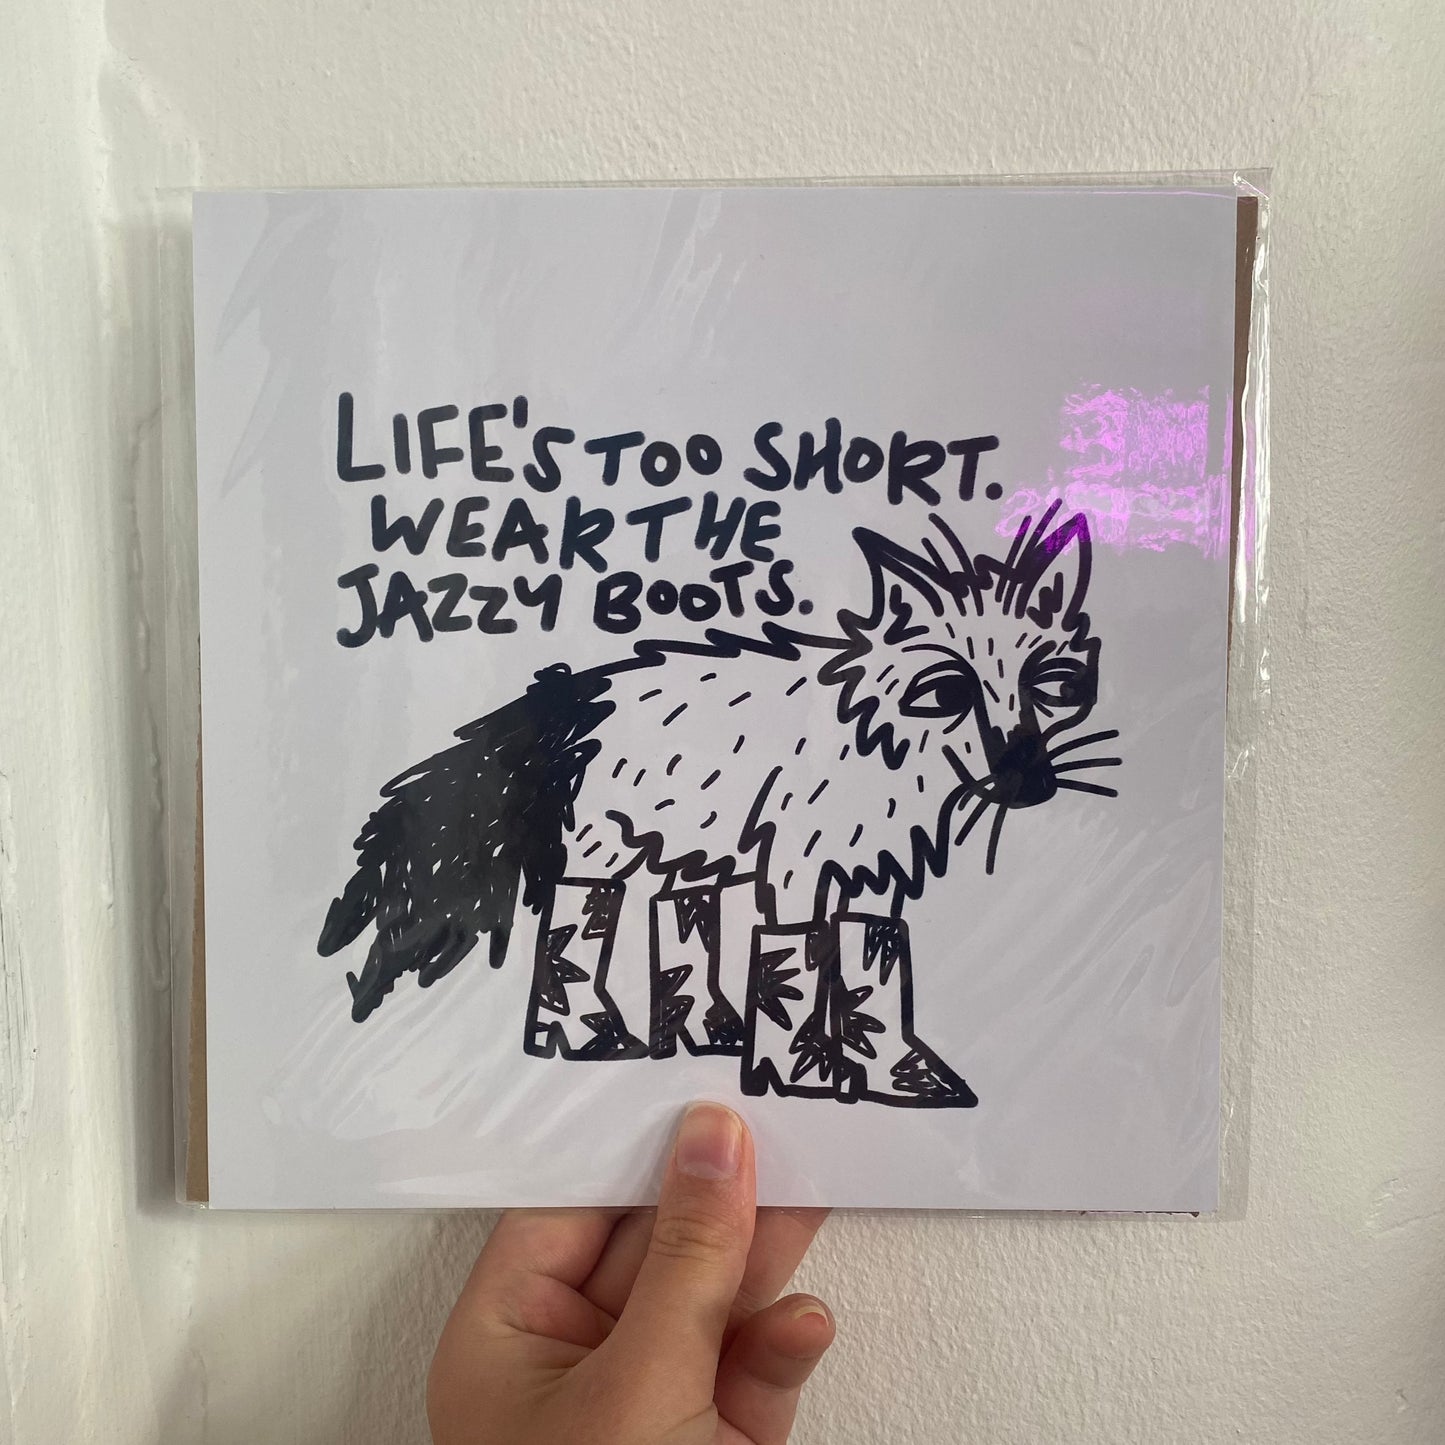 LIFE'S TOO SHORT.
WEAR THE
JAZZY BOOTS.